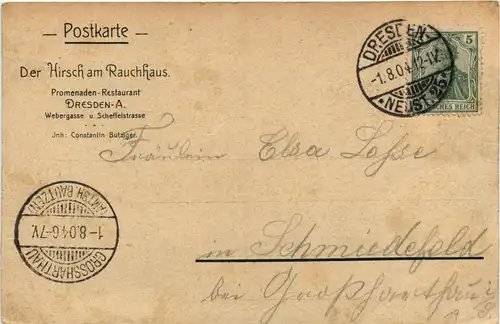 — Postkarte —
Der Hirsch am Rauchhaus.
Promenaden-Restaurant
DRESDEN-A.
Webergasse u. Scheffelstrasse
Jnh: Constantin Bütziger.
DRESDEN
-1.8.04.12-1V.
*NEUST. 25*
5
DEUTSCHES REICH
Fräulein Elsa Lasse
in Schmiedefeld
bei Großharthau
AMTSH. BAUTZEN
1-8.04.6-7V.
GROSSHARTHAU